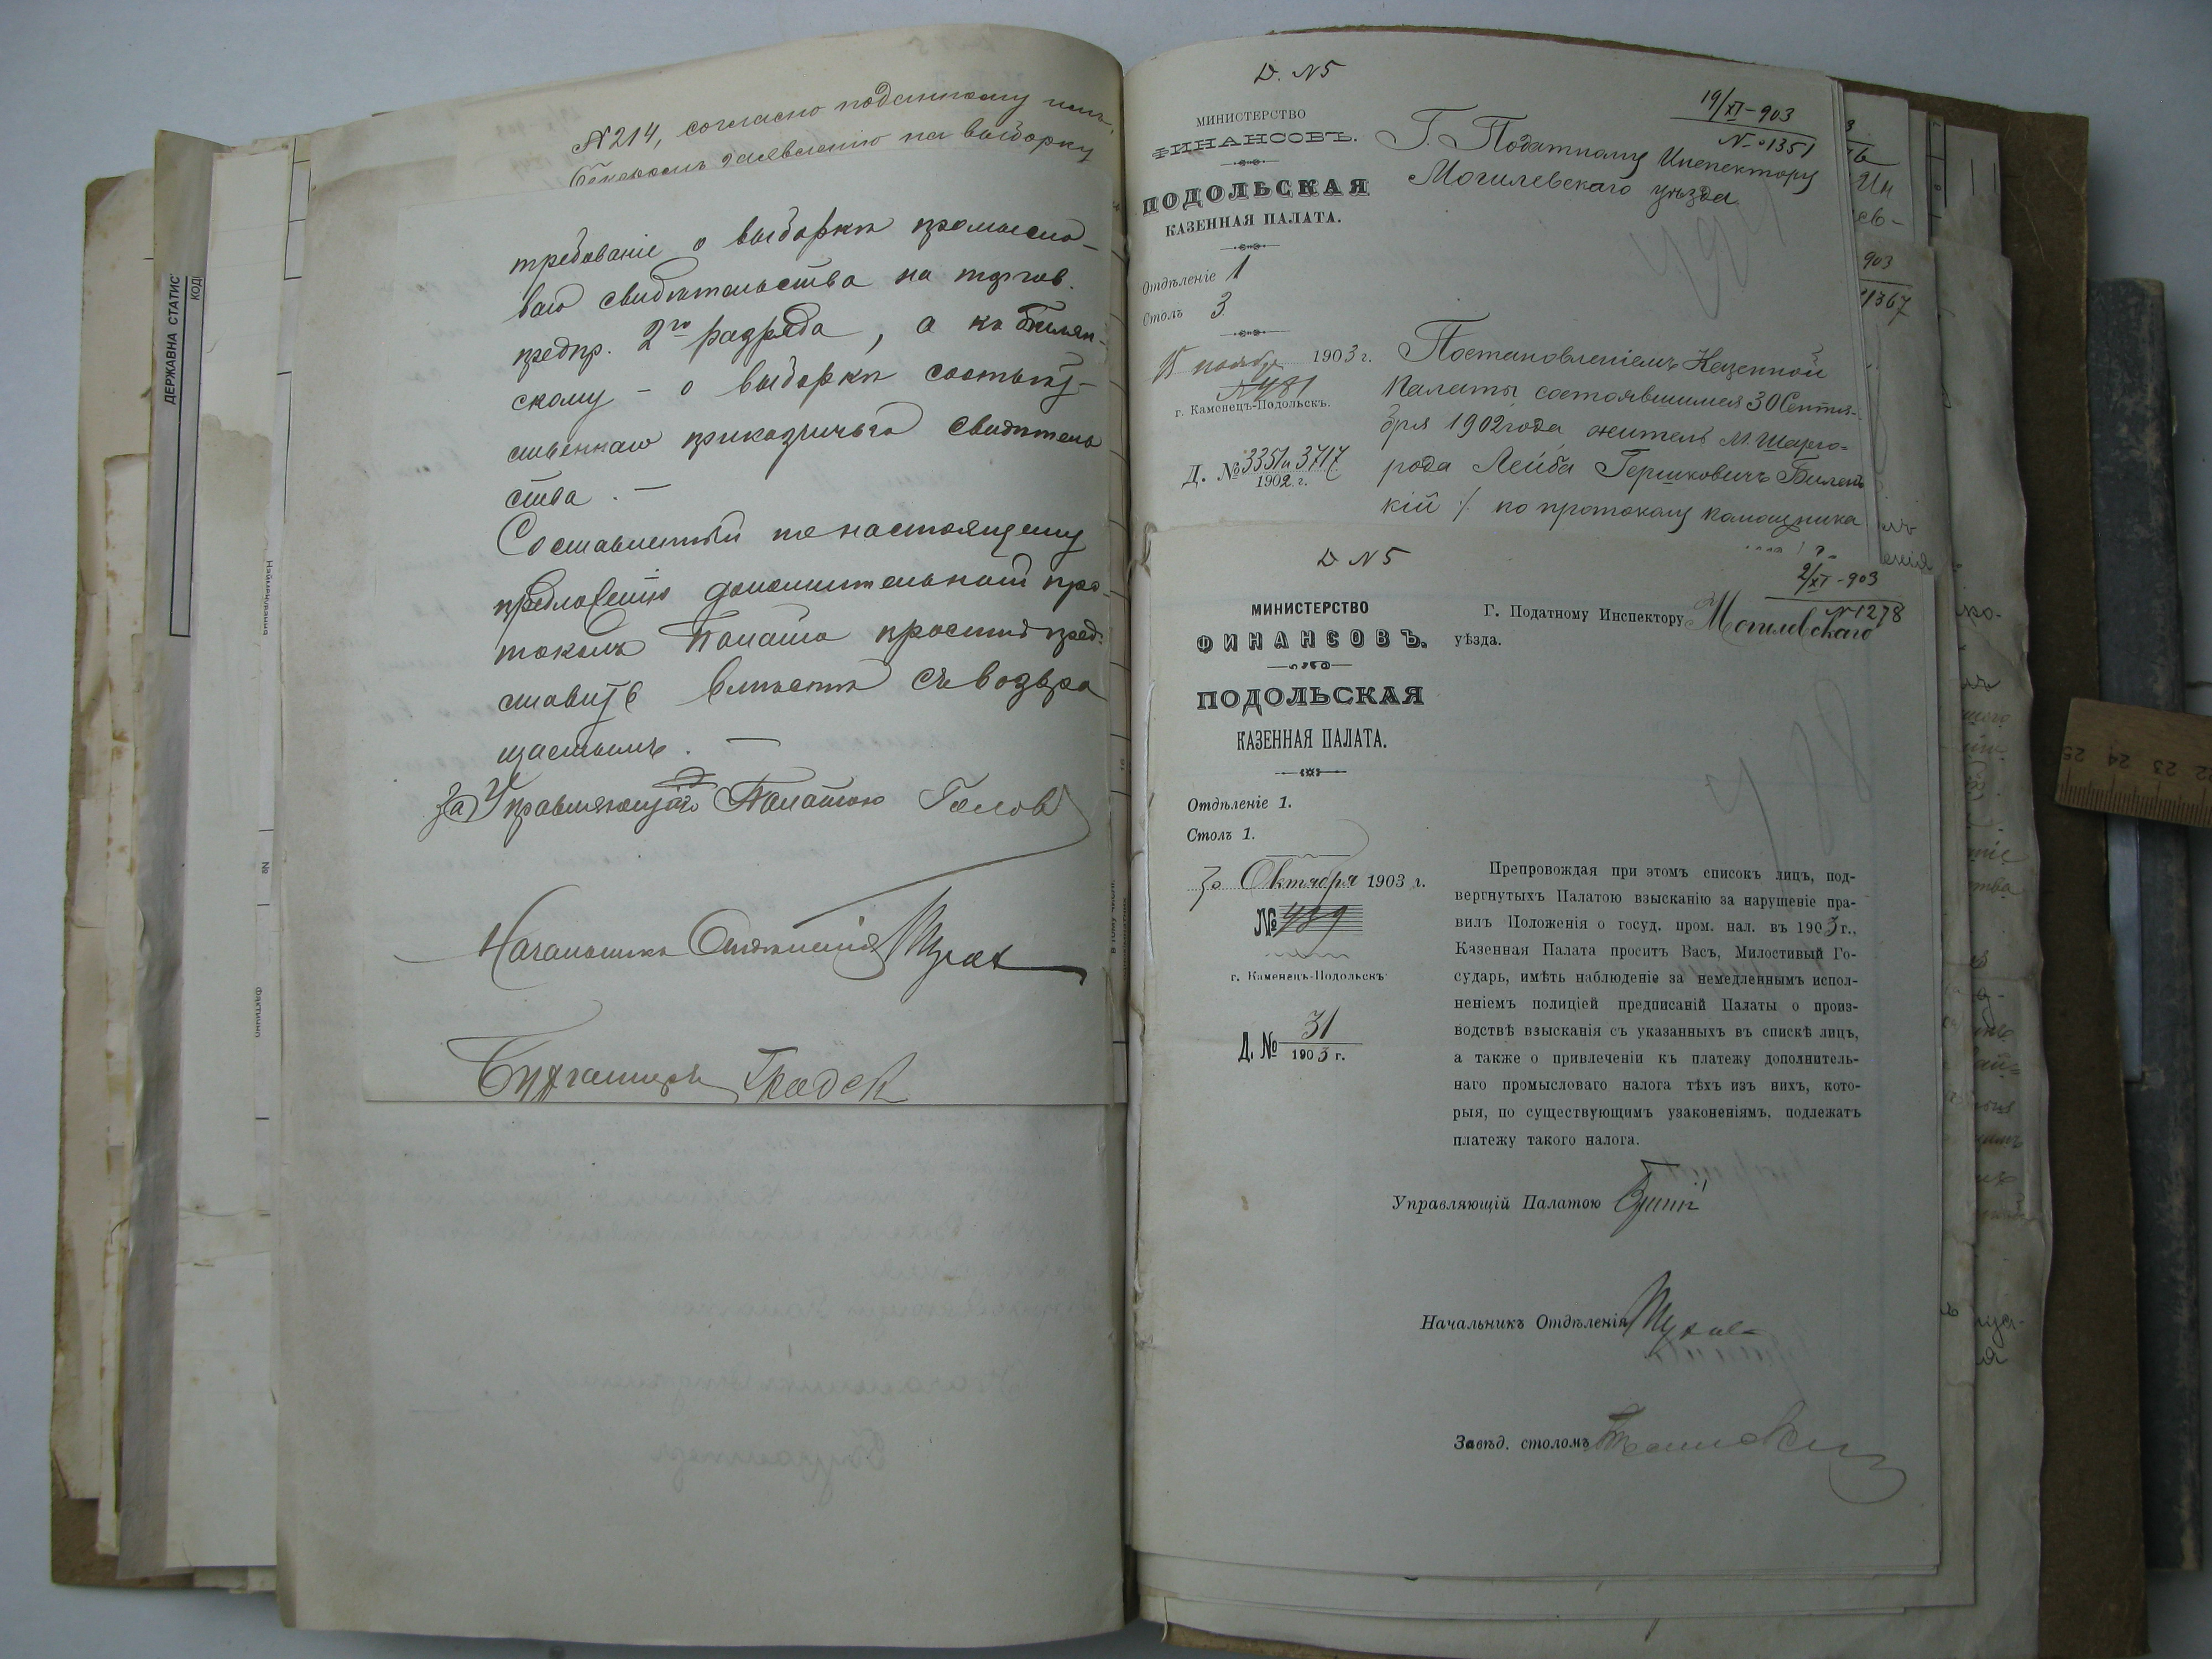 №214, согласно поданному
заявленію на выборку
требованіе о выборкѣ промысло-
ваго свидѣтельства на торгов.
предпр. 2го разряда, а къ Билян-
скому – о выборкѣ соотвѣт-
ственнаго приказчичьяго свидѣтель
ства. –
Составленный по настоящему
предложенію дополнительный про-
токолъ Палата проситъ пред-
ставить вмѣстѣ съ возвра
щаемымъ. –
За Управляющаго Палатою
Начальникъ Отдѣленія
Бухгалтеръ
ДЕРЖАВНА СТАТИС
КОДИ
№
фактично
Д. №5
МИНИСТЕРСТВО
ФИНАНСОВЪ.
ПОДОЛЬСКАЯ
КАЗЕННАЯ ПАЛАТА.
Отдѣленіе 1
Столъ 3
15 ноября 1903 г.
№481
г. Каменецъ-Подольскъ.
Д. № 3351 и 3717
1902 г.
19/XI–903
№ 1351
Г. Податному Инспектору
Могилевскаго уѣзда.
Постановленіемъ Казенной
Палаты состоявшимся 30 Сентя-
бря 1902 года, житель м. Шарго-
рода Лейба Гершковичъ Билен
кій /. по протоколу помощника
903
1367
Д №5
МИНИСТЕРСТВО
ФИНАНСОВЪ.
ПОДОЛЬСКАЯ
КАЗЕННАЯ ПАЛАТА.
Отдѣленіе 1.
Столъ 1.
30 Октября 1903 г.
№ 439
г. Каменецъ-Подольскъ
Д. № 31
1903 г.
2/XI–903
№1278
Г. Податному Инспектору Могилевскаго
уѣзда.
Препровождая при этомъ списокъ лицъ, под-
вергнутыхъ Палатою взысканію за нарушеніе пра-
вилъ Положенія о госуд. пром. нал. въ 1903 г.,
Казенная Палата проситъ Васъ, Милостивый Го-
сударь, имѣть наблюденіе за немедленнымъ испол-
неніемъ полиціей предписаній Палаты о произ-
водствѣ взысканія съ указанныхъ въ спискѣ лицъ,
а также о привлеченіи къ платежу дополнитель-
наго промысловаго налога тѣхъ изъ нихъ, кото-
рыя, по существующимъ узаконеніямъ, подлежатъ
платежу такого налога.
Управляющій Палатою
Начальникъ Отдѣленія
Завѣд. столомъ
25 24 23 22